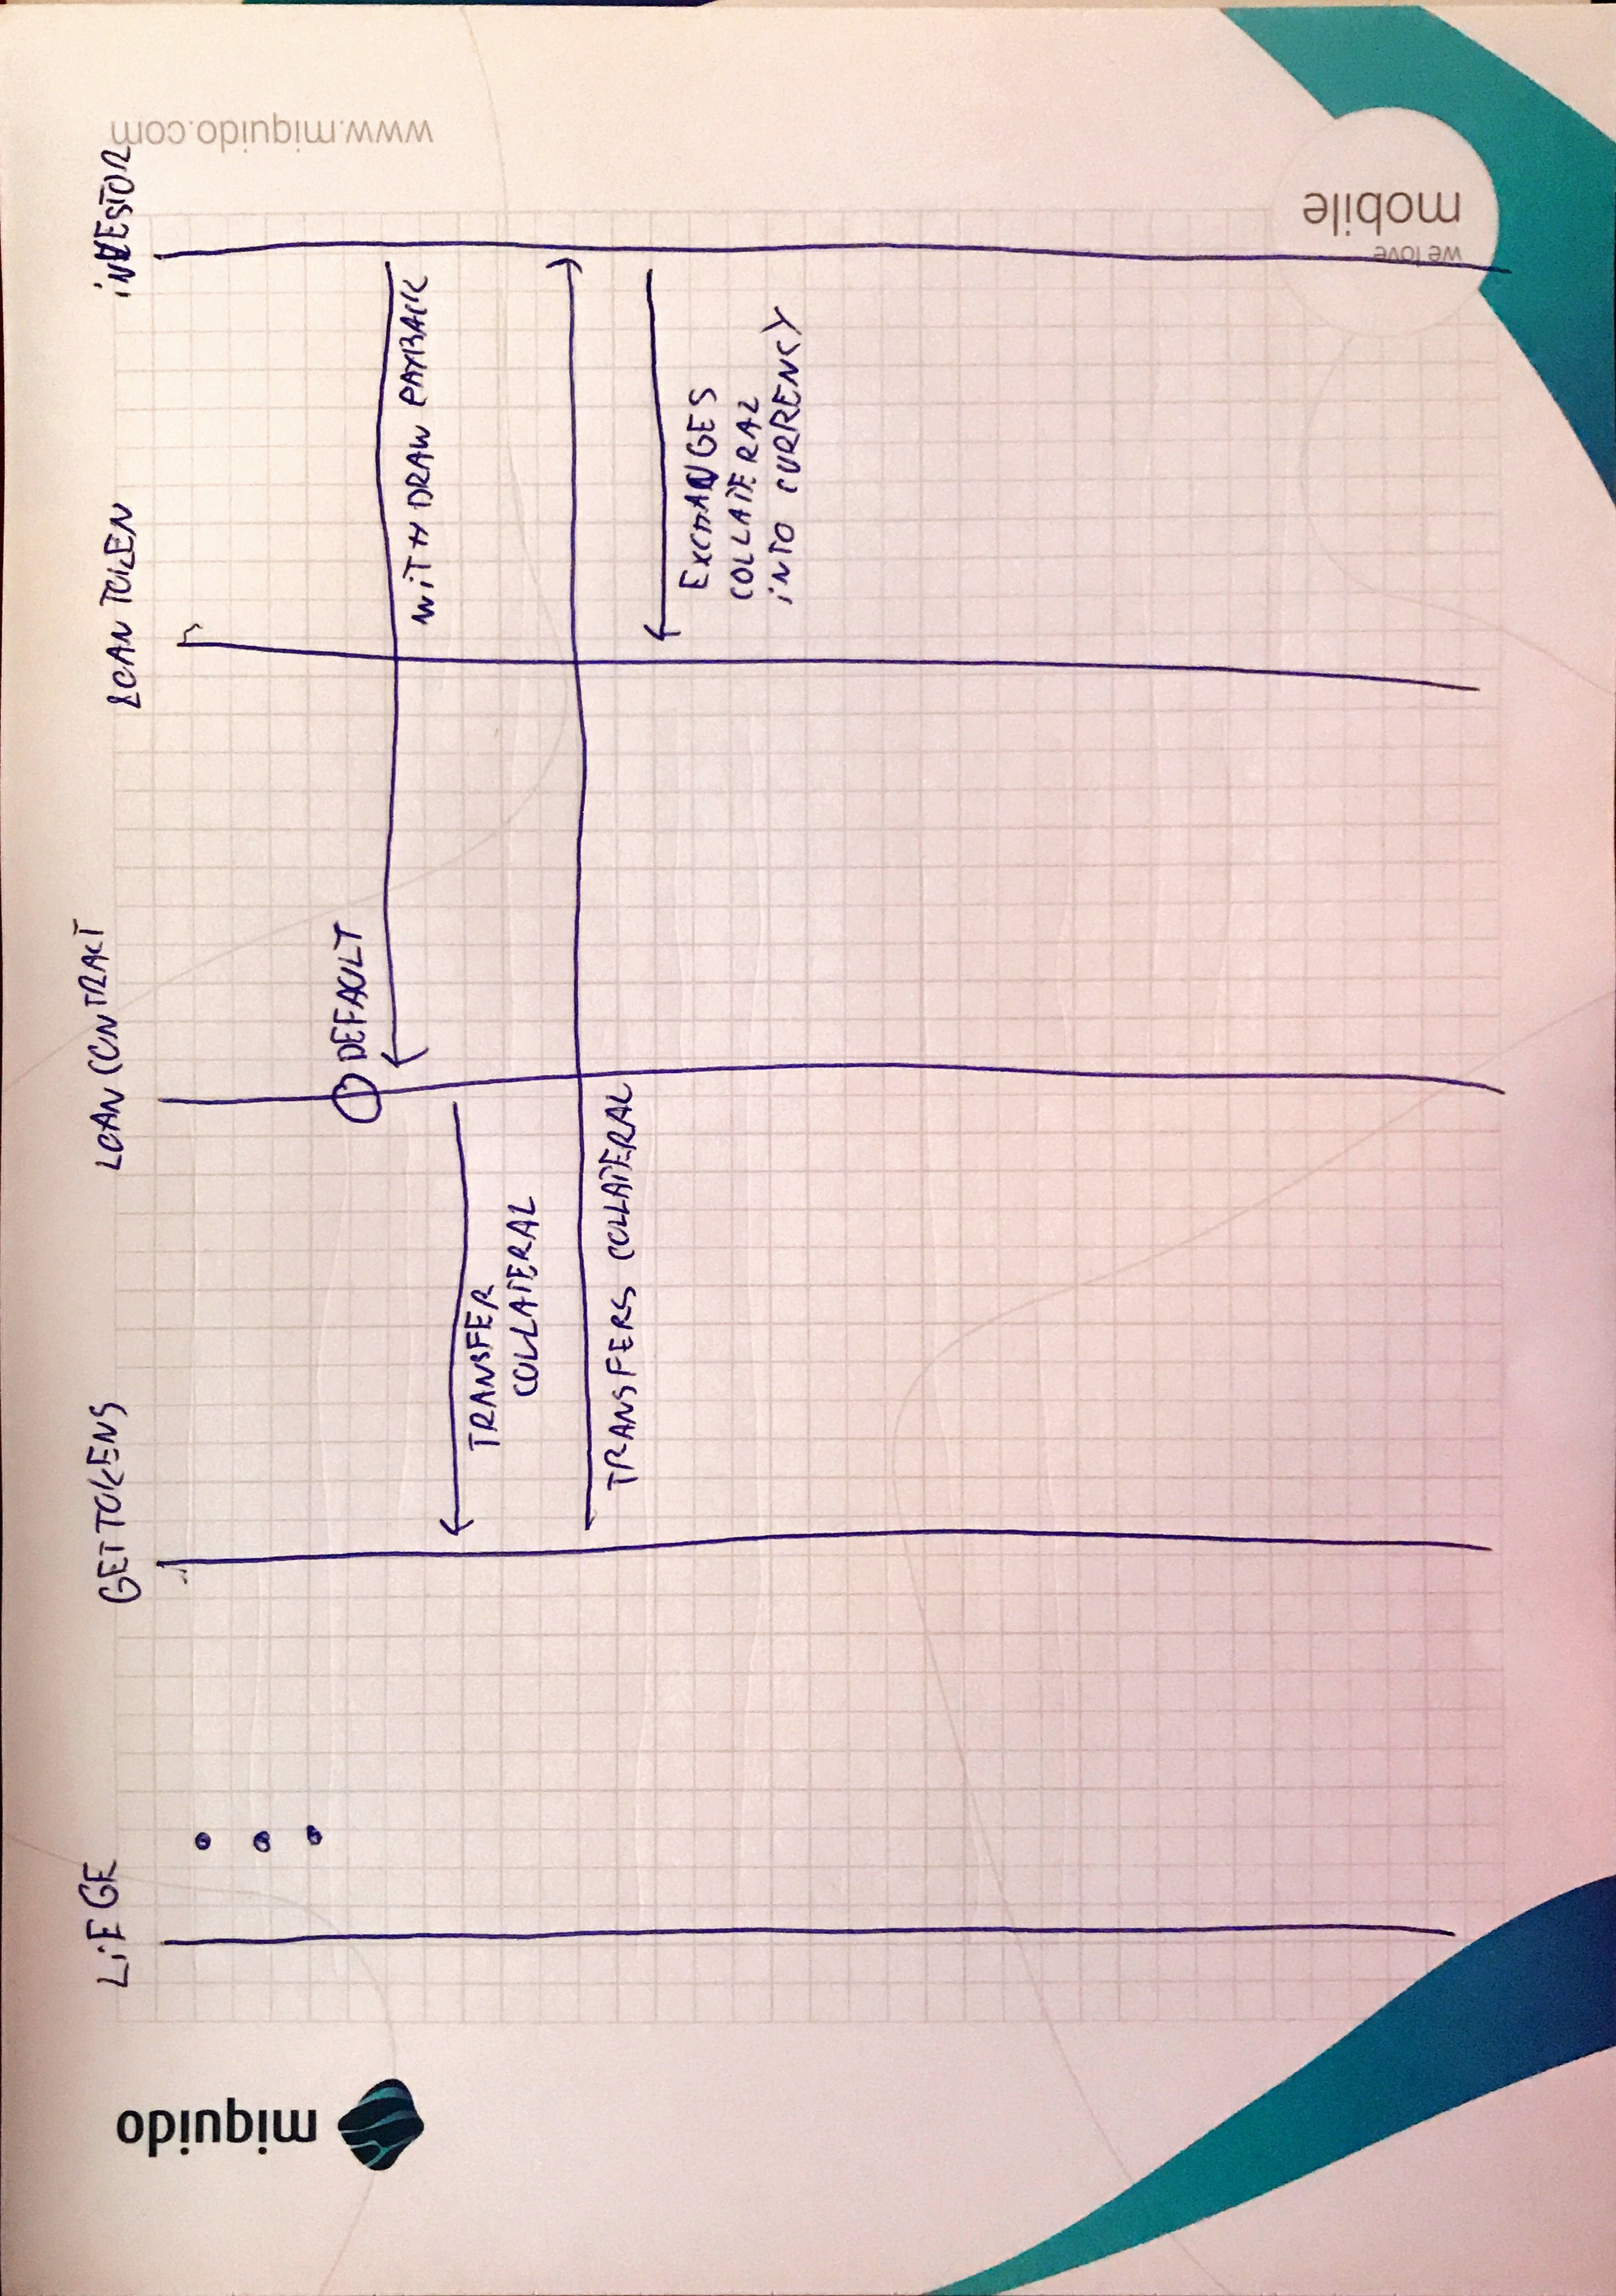 LiEGE
GET TOKENS
LOAN CONTRACT
LOAN TOKEN
iNVESTOR
miquido
www.miquido.com
DEFAULT
WiTHDRAW PAYBACK
TRANSFER
COLLATERAL
TRANSFERS COLLATERAL
EXCHANGES
COLLATERAL
iNTO CURRENCY
we love
mobile